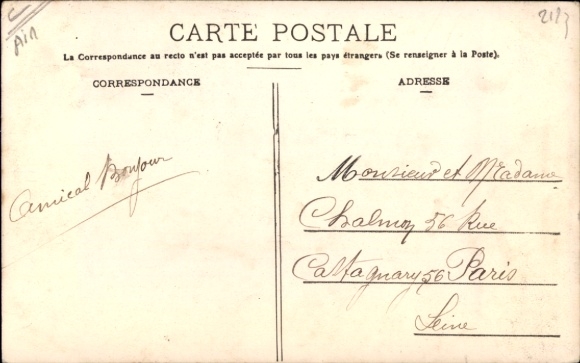 Ain
2173
CARTE POSTALE
La Correspondance au recto n'est pas acceptée par tous les pays étrangers (Se renseigner à la Poste).
CORRESPONDANCE
Amical Bonjour
ADRESSE
Monsieur et Madame
Chalmon 56 Rue
Castagnary 56 Paris
Seine